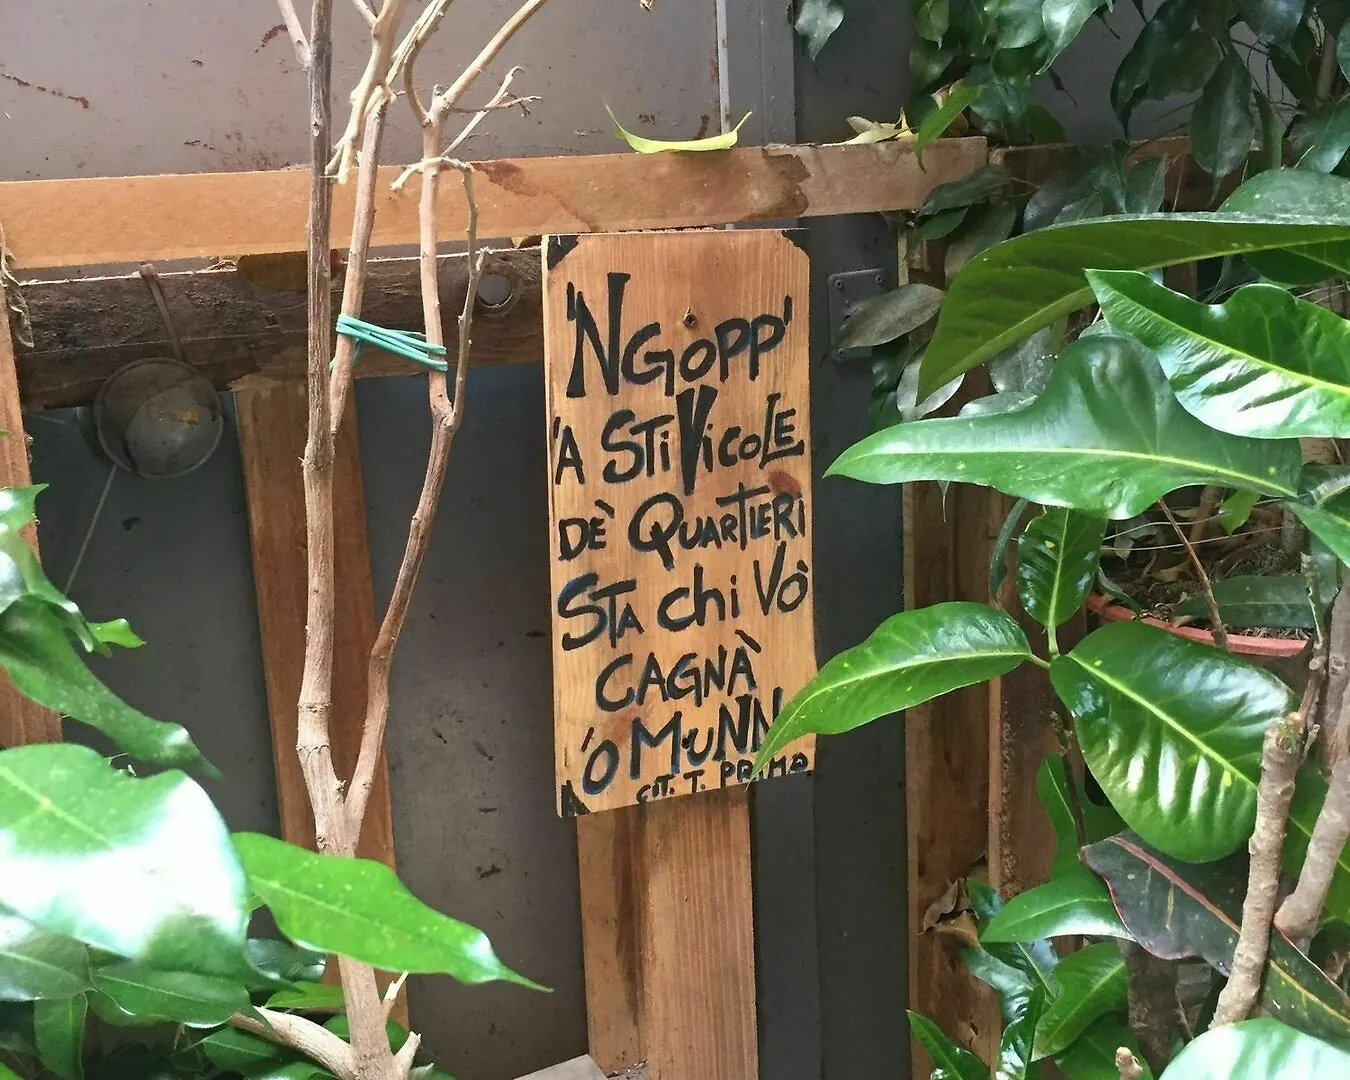 'NGOPP'
'A STI VICOLE
DÈ QUARTIERI
STA chi VÒ
CAGNÀ
'O MUNN
CIT. T. PRIMO